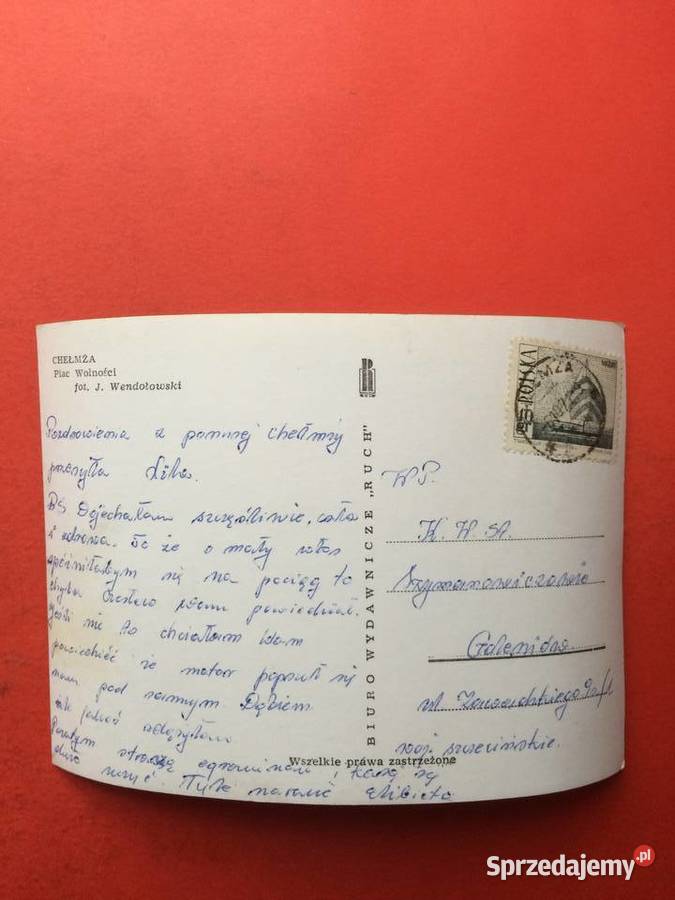 CHEŁMŻA
Plac Wolności
fot. J. Wendołowski
Pozdrowienia z ponurej Chełmży
przesyła
PS Dojechałam szczęśliwie, cała
i zdrowa. To że o mały włos
spóźniłabym się na pociąg to
chyba Czesław wam powiedział.
Jeśli nie to chciałam Wam
powiedzieć że motor popsuł się
nam pod samym Dębiem
ale jakoś zdążyłam
Poza tym straszą egzaminami i każą się
dużo uczyć. Tyle na razie Elżbieta
BIURO WYDAWNICZE „RUCH"
Wszelkie prawa zastrzeżone
POLSKA
WP.
K. W. St.
Szymanowiczowie
Goleniów
ul.
woj. szczecińskie.
Sprzedajemy.pl